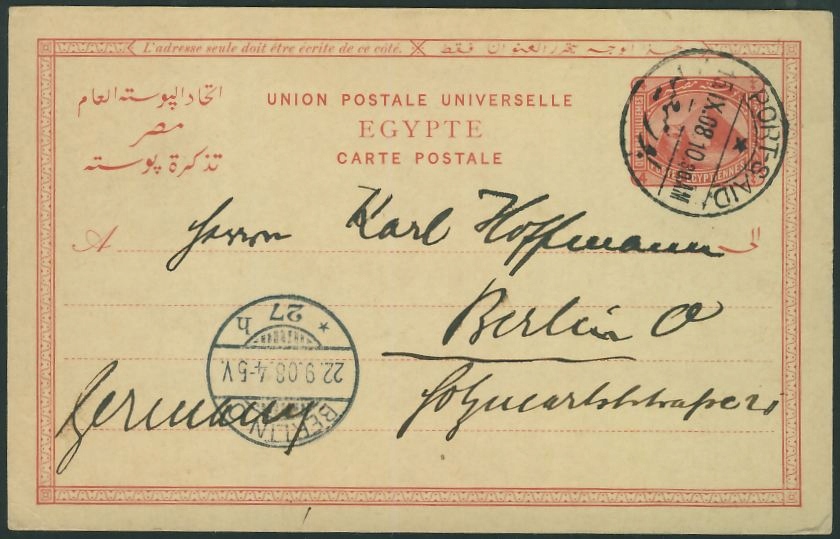 L'adresse seule doit être écrite de ce côté. هذا الوجه يتحرر العنوان فقط
اتحاد البوسته العام
مصر
تذكرة بوسته
UNION POSTALE UNIVERSELLE
EGYPTE
CARTE POSTALE
PORT-SAID
IX.08.10
A
Herrn Karl Hoffmann
الى
Berlin O
Germany
BERLIN
22.9.08.4-5V.
* 27 h